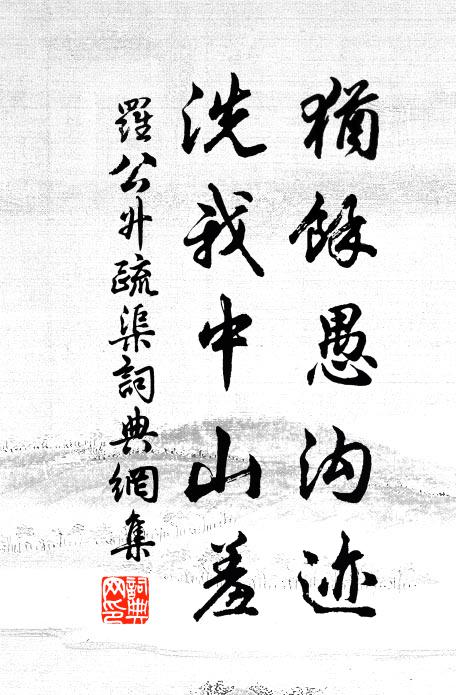 猶餘愚沟迹
洗我中山羞
羅公升疏渠詞典網集
詞典網印